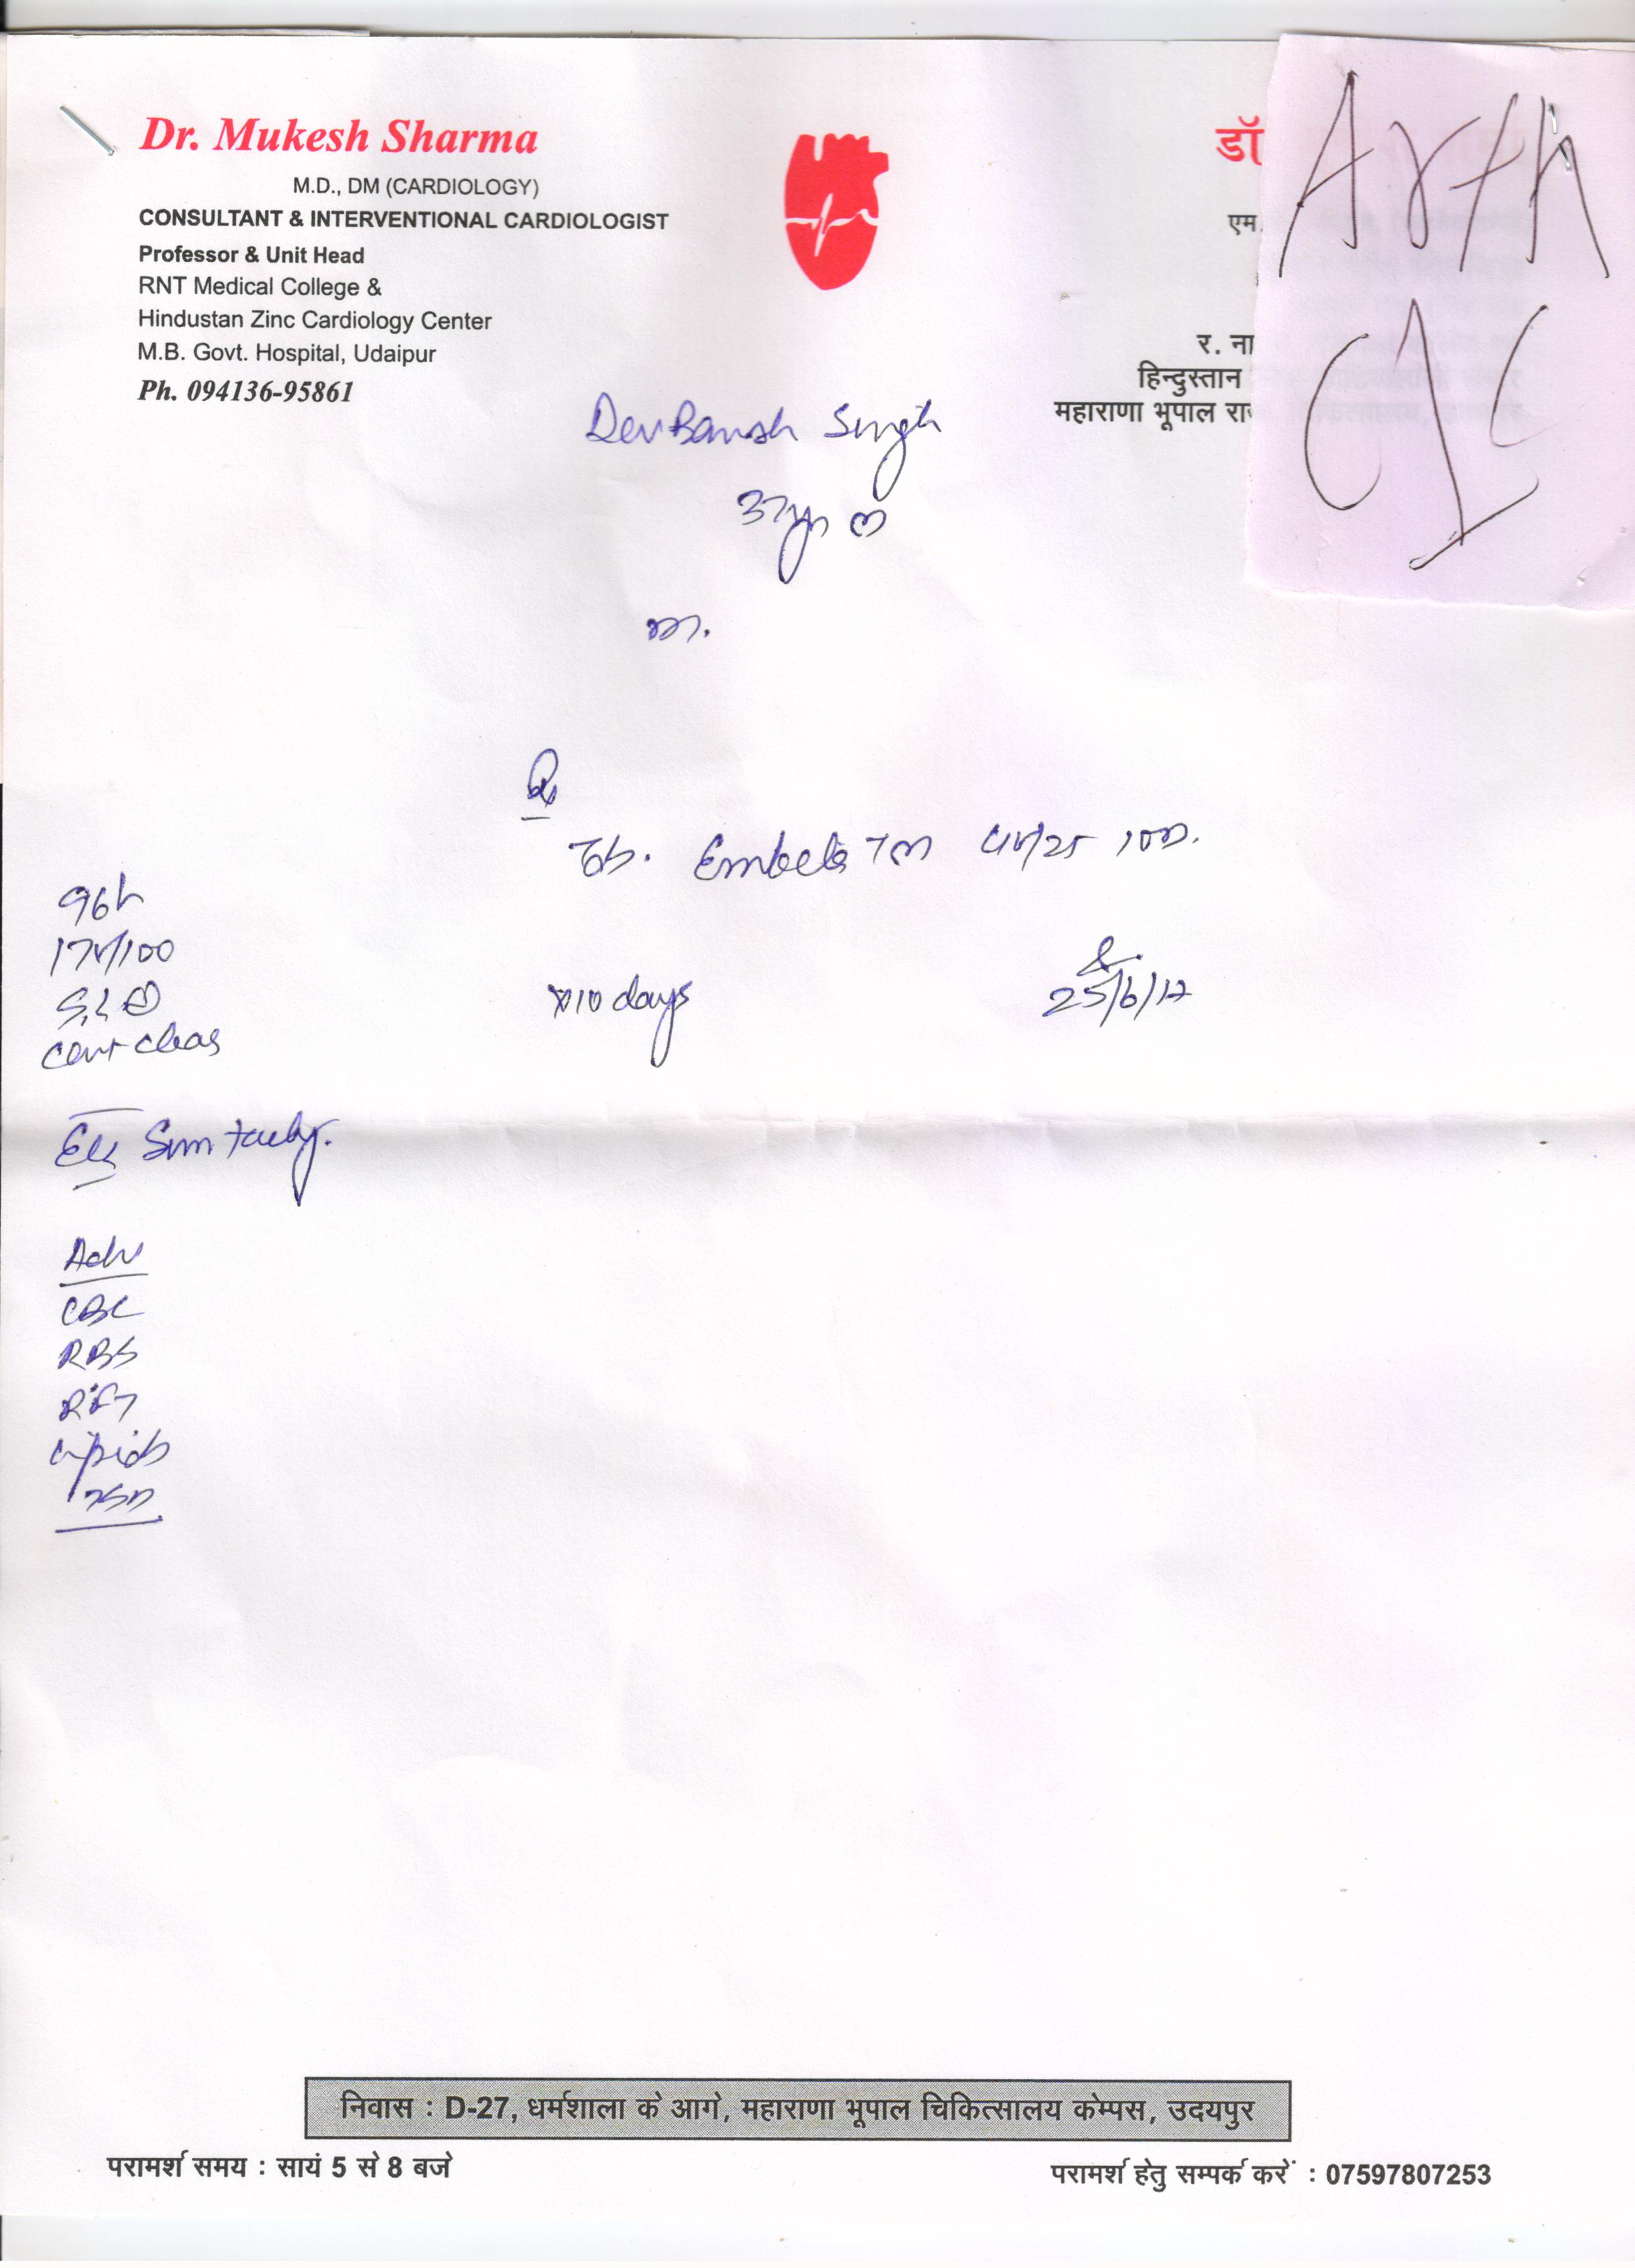 Dr. Mukesh Sharma
M.D., DM (CARDIOLOGY)
CONSULTANT & INTERVENTIONAL CARDIOLOGIST
Professor & Unit Head
RNT Medical College &
Hindustan Zinc Cardiology Center
M.B. Govt. Hospital, Udaipur
Ph. 094136-95861
डॉ
एम.
र. ना
हिन्दुस्तान
महाराणा भूपाल राज
Arth
DevBansh Singh
37yr M
Rx
Tab. Embeta TM 1 OD.
170/100
Chest Clear
x 10 days
25/6/17
Sinus tachy.
Adv
CBC
RBS
RFT
Lipids
TSH
निवास : D-27, धर्मशाला के आगे, महाराणा भूपाल चिकित्सालय केम्पस, उदयपुर
परामर्श समय : सायं 5 से 8 बजे
परामर्श हेतु सम्पर्क करें : 07597807253